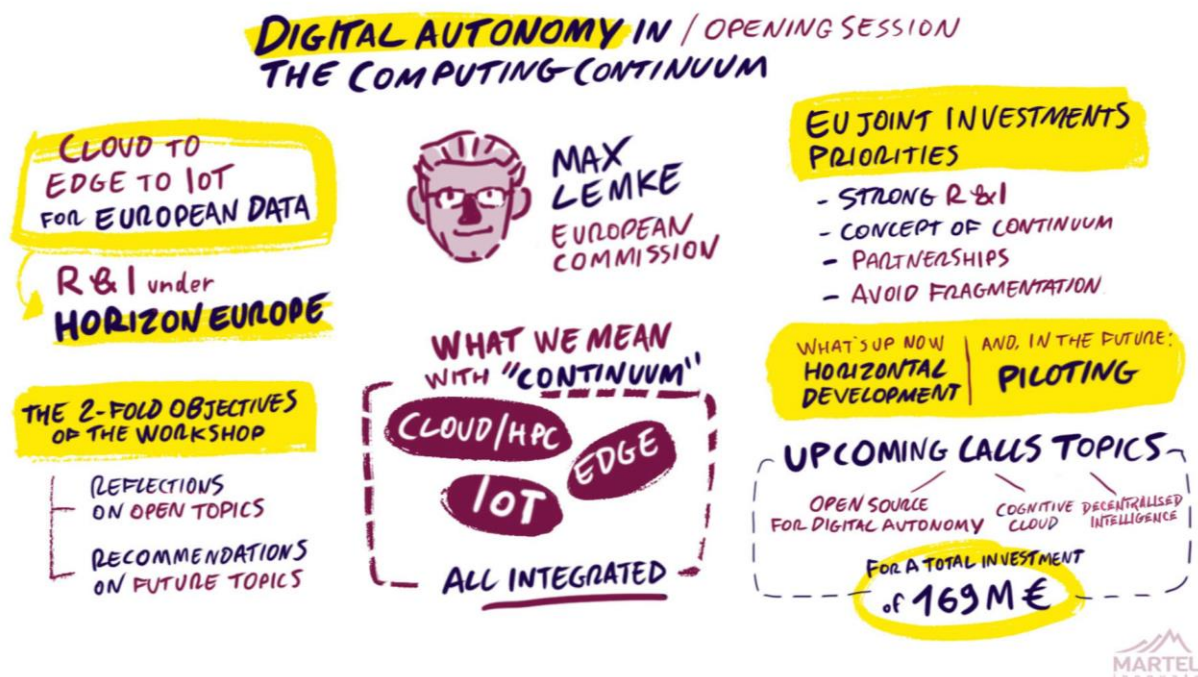 DIGITAL AUTONOMY IN / OPENING SESSION
THE COMPUTING CONTINUUM
CLOUD TO
EDGE TO IOT
FOR EUROPEAN DATA
R & I under
HORIZON EUROPE
THE 2-FOLD OBJECTIVES
OF THE WORKSHOP
REFLECTIONS
ON OPEN TOPICS
RECOMMENDATIONS
ON FUTURE TOPICS
MAX
LEMKE
EUROPEAN
COMMISSION
WHAT WE MEAN
WITH "CONTINUUM"
CLOUD/HPC
EDGE
IOT
ALL INTEGRATED
EU JOINT INVESTMENTS
PRIORITIES
- STRONG R & I
- CONCEPT OF CONTINUUM
- PARTNERSHIPS
- AVOID FRAGMENTATION
WHAT'S UP NOW
HORIZONTAL
DEVELOPMENT
AND, IN THE FUTURE:
PILOTING
UPCOMING CALLS TOPICS
OPEN SOURCE
FOR DIGITAL AUTONOMY
COGNITIVE
CLOUD
DECENTRALISED
INTELLIGENCE
FOR A TOTAL INVESTMENT
of 169 M €
MARTEL